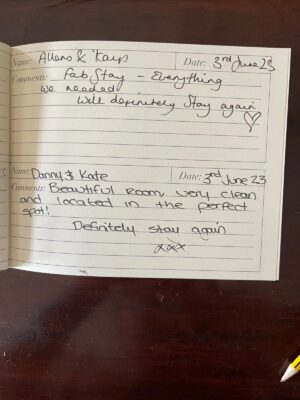 Name: Allens & Kays Date: 3rd June 23
Comments: Fab Stay - Everything
we needed
Will definitely Stay again
Name: Danny & Kate Date: 3rd June 23
Comments: Beautiful Room, very clean
and located in the perfect
spot!
Definitely stay again
xxx